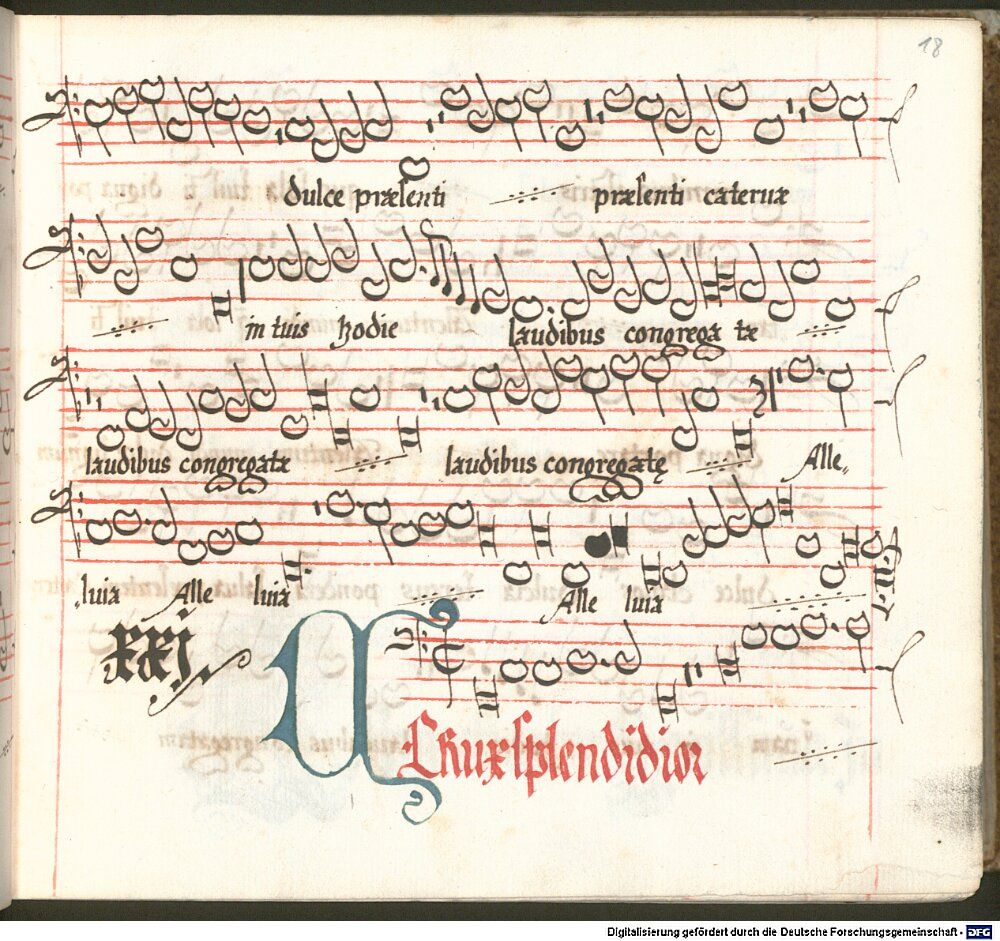 18
dulce præsenti præsenti cateruæ
in tuis hodie laudibus congregatæ
laudibus congregatæ laudibus congregatę Alle„
„luia Alle luia Alle luia
xxj
O Crux splendidior
Digitalisierung gefördert durch die Deutsche Forschungsgemeinschaft - DFG